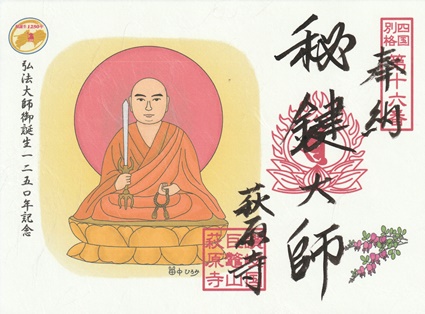 四国
別格
第十六番
奉納
秘鍵大師
萩原寺
弘法大師御誕生一二五〇年記念
萩原寺